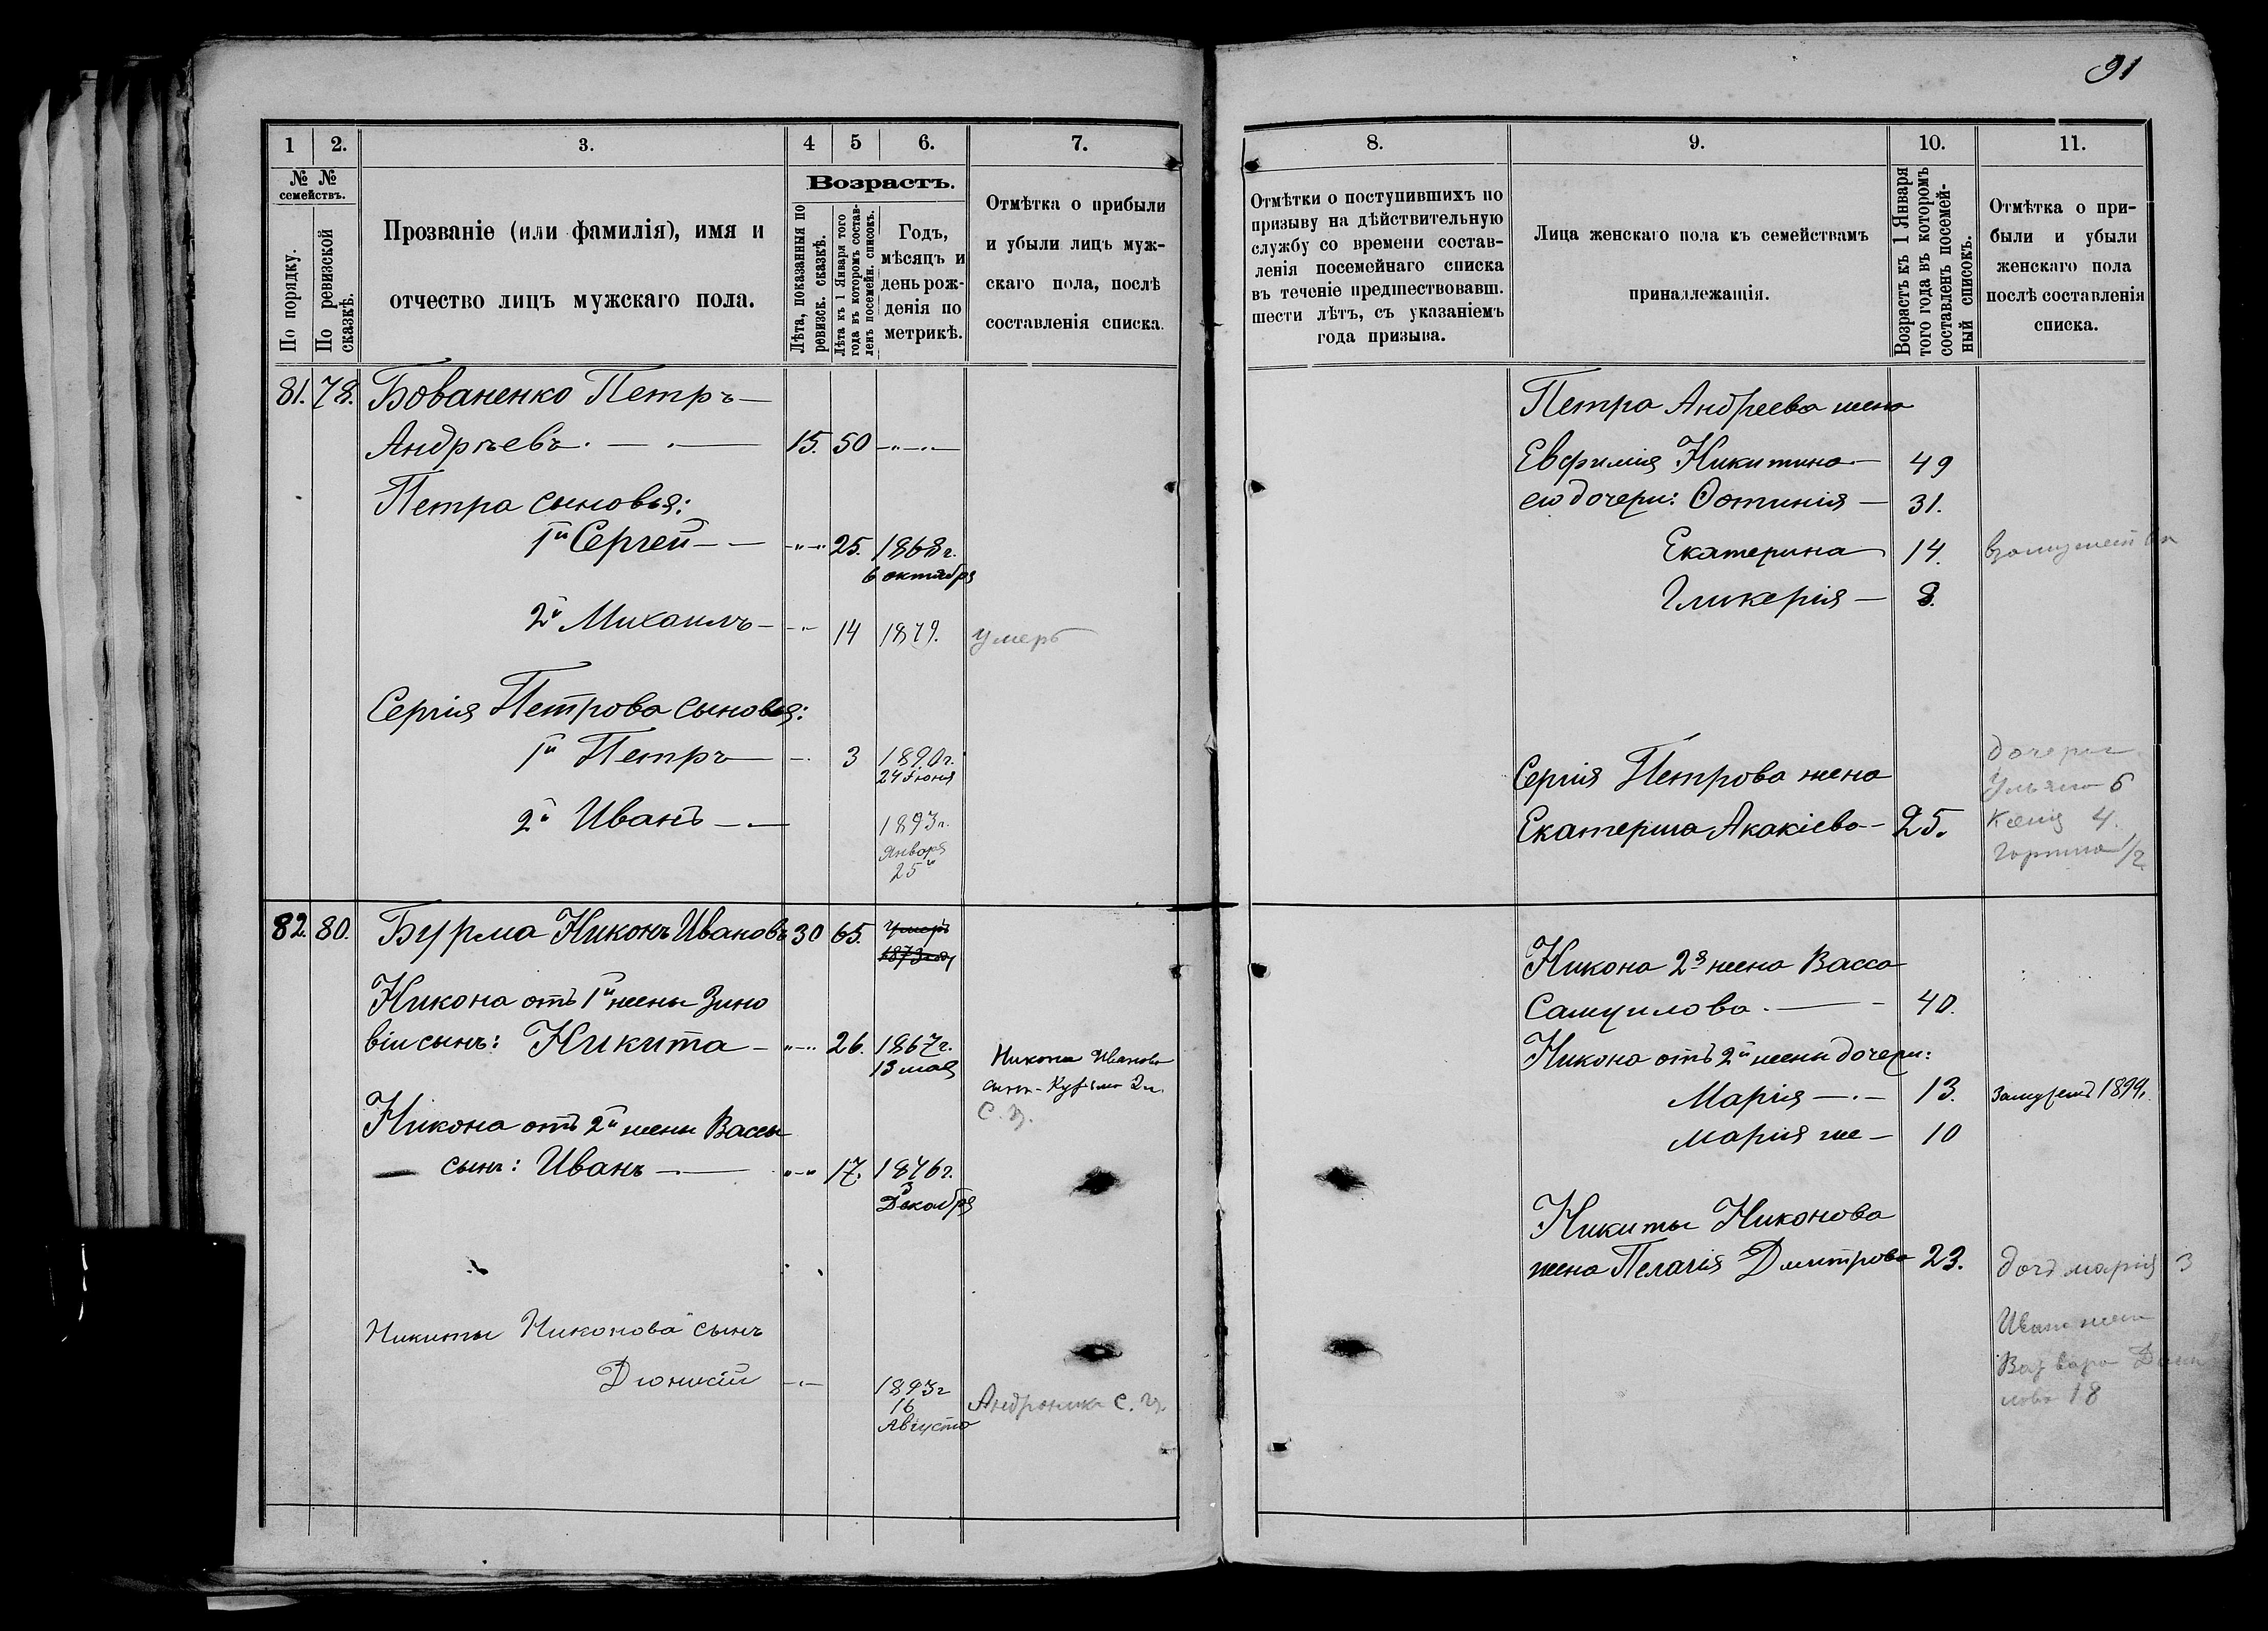 91
1
2.
3.
4
5
6.
7.
№ №
семействъ.
По порядку.
По ревизской
сказкѣ.
Прозваніе (или фамилія), имя и
отчество лицъ мужскаго пола.
Возрастъ.
Лѣта, показанныя по
ревизск. сказкѣ.
Лѣта къ 1 Января того
года въ которомъ состав-
ленъ посемейн. списокъ.
Годъ,
мѣсяцъ и
день рож-
денія по
метрикѣ.
Отмѣтка о прибыли
и убыли лицъ муж-
скаго пола, послѣ
составленія списка.
81. 78. Бованенко Петръ
Андрѣевъ. 15. 50
Петра сыновья:
1й Сергей 25. 1868 г.
6 октября
2й Михаилъ 14 1879. умеръ
Сергія Петрова сыновья:
1й Петръ 3 1890 г.
24 Июня
2й Иванъ 1893 г.
Января
25го
82. 80. Бурма Никонъ Ивановъ 30 65. умеръ
1873 году
Никона отъ 1й жены Зино
віи сынъ: Никита 26. 1867 г.
13 мая
Никона Иванова
сынъ Кузьма 2 л.
С. З.
Никона отъ 2й жены Вассы
сынъ: Иванъ 17. 1876 г.
3
Декабря
Никиты Никонова сынъ
Дионисій 1893 г
16
Августа
Андроника С. З.
8.
9.
10.
11.
Отмѣтки о поступившихъ по
призыву на дѣйствительную
службу со времени состав-
ленія посемейнаго списка
въ теченіе предшествовавш.
шести лѣтъ, съ указаніемъ
года призыва.
Лица женскаго пола къ семействамъ
принадлежащія.
Возрастъ къ 1 Января
того года въ которомъ
составленъ посемей-
ный списокъ.
Отмѣтка о при-
были и убыли
женскаго пола
послѣ составленія
списка.
Петра Андреева жена
Евфимія Никитина 49
его дочери: Фотинія 31.
Екатерина 14. взамужестве
Гликерія 8.
Сергія Петрова жена
Екатерина Акакіева 25.
дочери
Ульяна 6
Ксенія 4.
1/2
Никона 2я жена Васса
Самуилова. 40.
Никона отъ 2й жены дочери:
Марія 13. Замужемъ 1899.
Марія же 10
Никиты Никонова
жена Пелагія Дмитрова 23. дочь марія 3
Ивана жена
Варвара
18